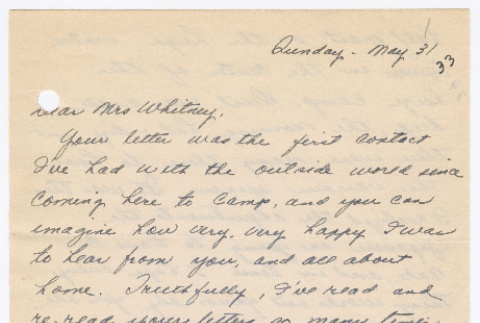 Sunday - May 31
33
Dear Mrs Whitney,
Your letter was the first contact
I've had with the outside world since
coming here to camp, and you can
imagine how very, very happy I was
to hear from you, and all about
home. Truthfully, I've read and
re-read your letters so many times